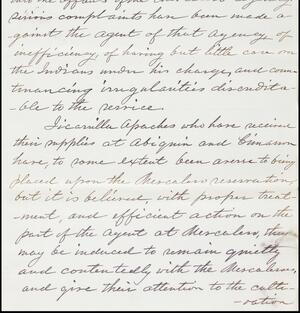 into the affairs of the
serious complaints han been made a-
gainst the agent of that Agency, of
inefficiency, of having but little care on
the Indians under his charge, and coun-
tenancing irregularities discredita-
ble to the service.
Jicarilla Apaches who have received
their supplies at Abiquiu and Cimarron
have, to some extent been averse to being
placed upon the Mescalero reservation,
but it is believed with proper treat-
ment, and efficient action on the
part of the agent at Mescalero, they
may be induced to remain quietly
and contentedly with the Mescaleros,
and give their attention to the culti-
-vation